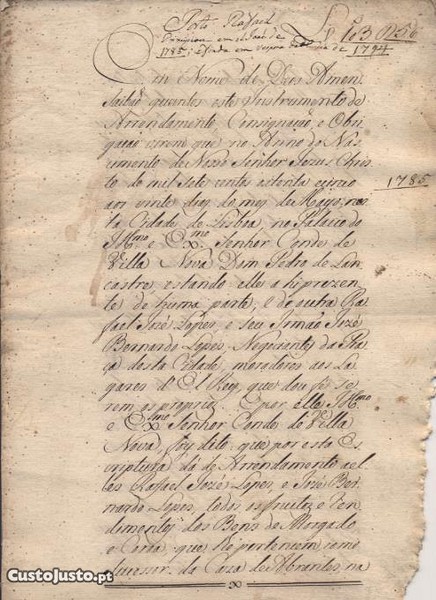 Porto Raffael
1785;
de 1794
Em Nome de Deos Amen
Saibão quantos este Instrumento de
Arrendamento, Consignação, e Obri
gação virem que no Anno do Nas
cimento de Nosso Senhor Jesus Chris
to de mil sete centos e oitenta e cinco
1785
aos vinte dias do mez de Mayo, nes
ta Cidade de Lisboa, no Palacio do
Illmo e Exmo Senhor Conde de
Villa Nova Dom Pedro de Lan
castre, estando elle ahi prezen
te de huma parte, e da outra Ra
fael Jozé Lopes, e seu Irmão Jozé
Bernardo Lopes, Negociantes da Pra
ça desta Cidade, moradores aos La
gares d' El Rey, que dou fé se
rem os proprios. E por elle Illmo
e Exmo Senhor Conde de Villa
Nova, foy dito que por esta Es
criptura dá de Arrendamento a el
les Rafael Jozé Lopes, e Jozé Ber
nardo Lopes, todos os fruitos e Ren
dimentos dos Bens do Morgado
e Caza, que lhe pertencem como
sucessor da Caza de Abrantes, na
CustoJusto.pt